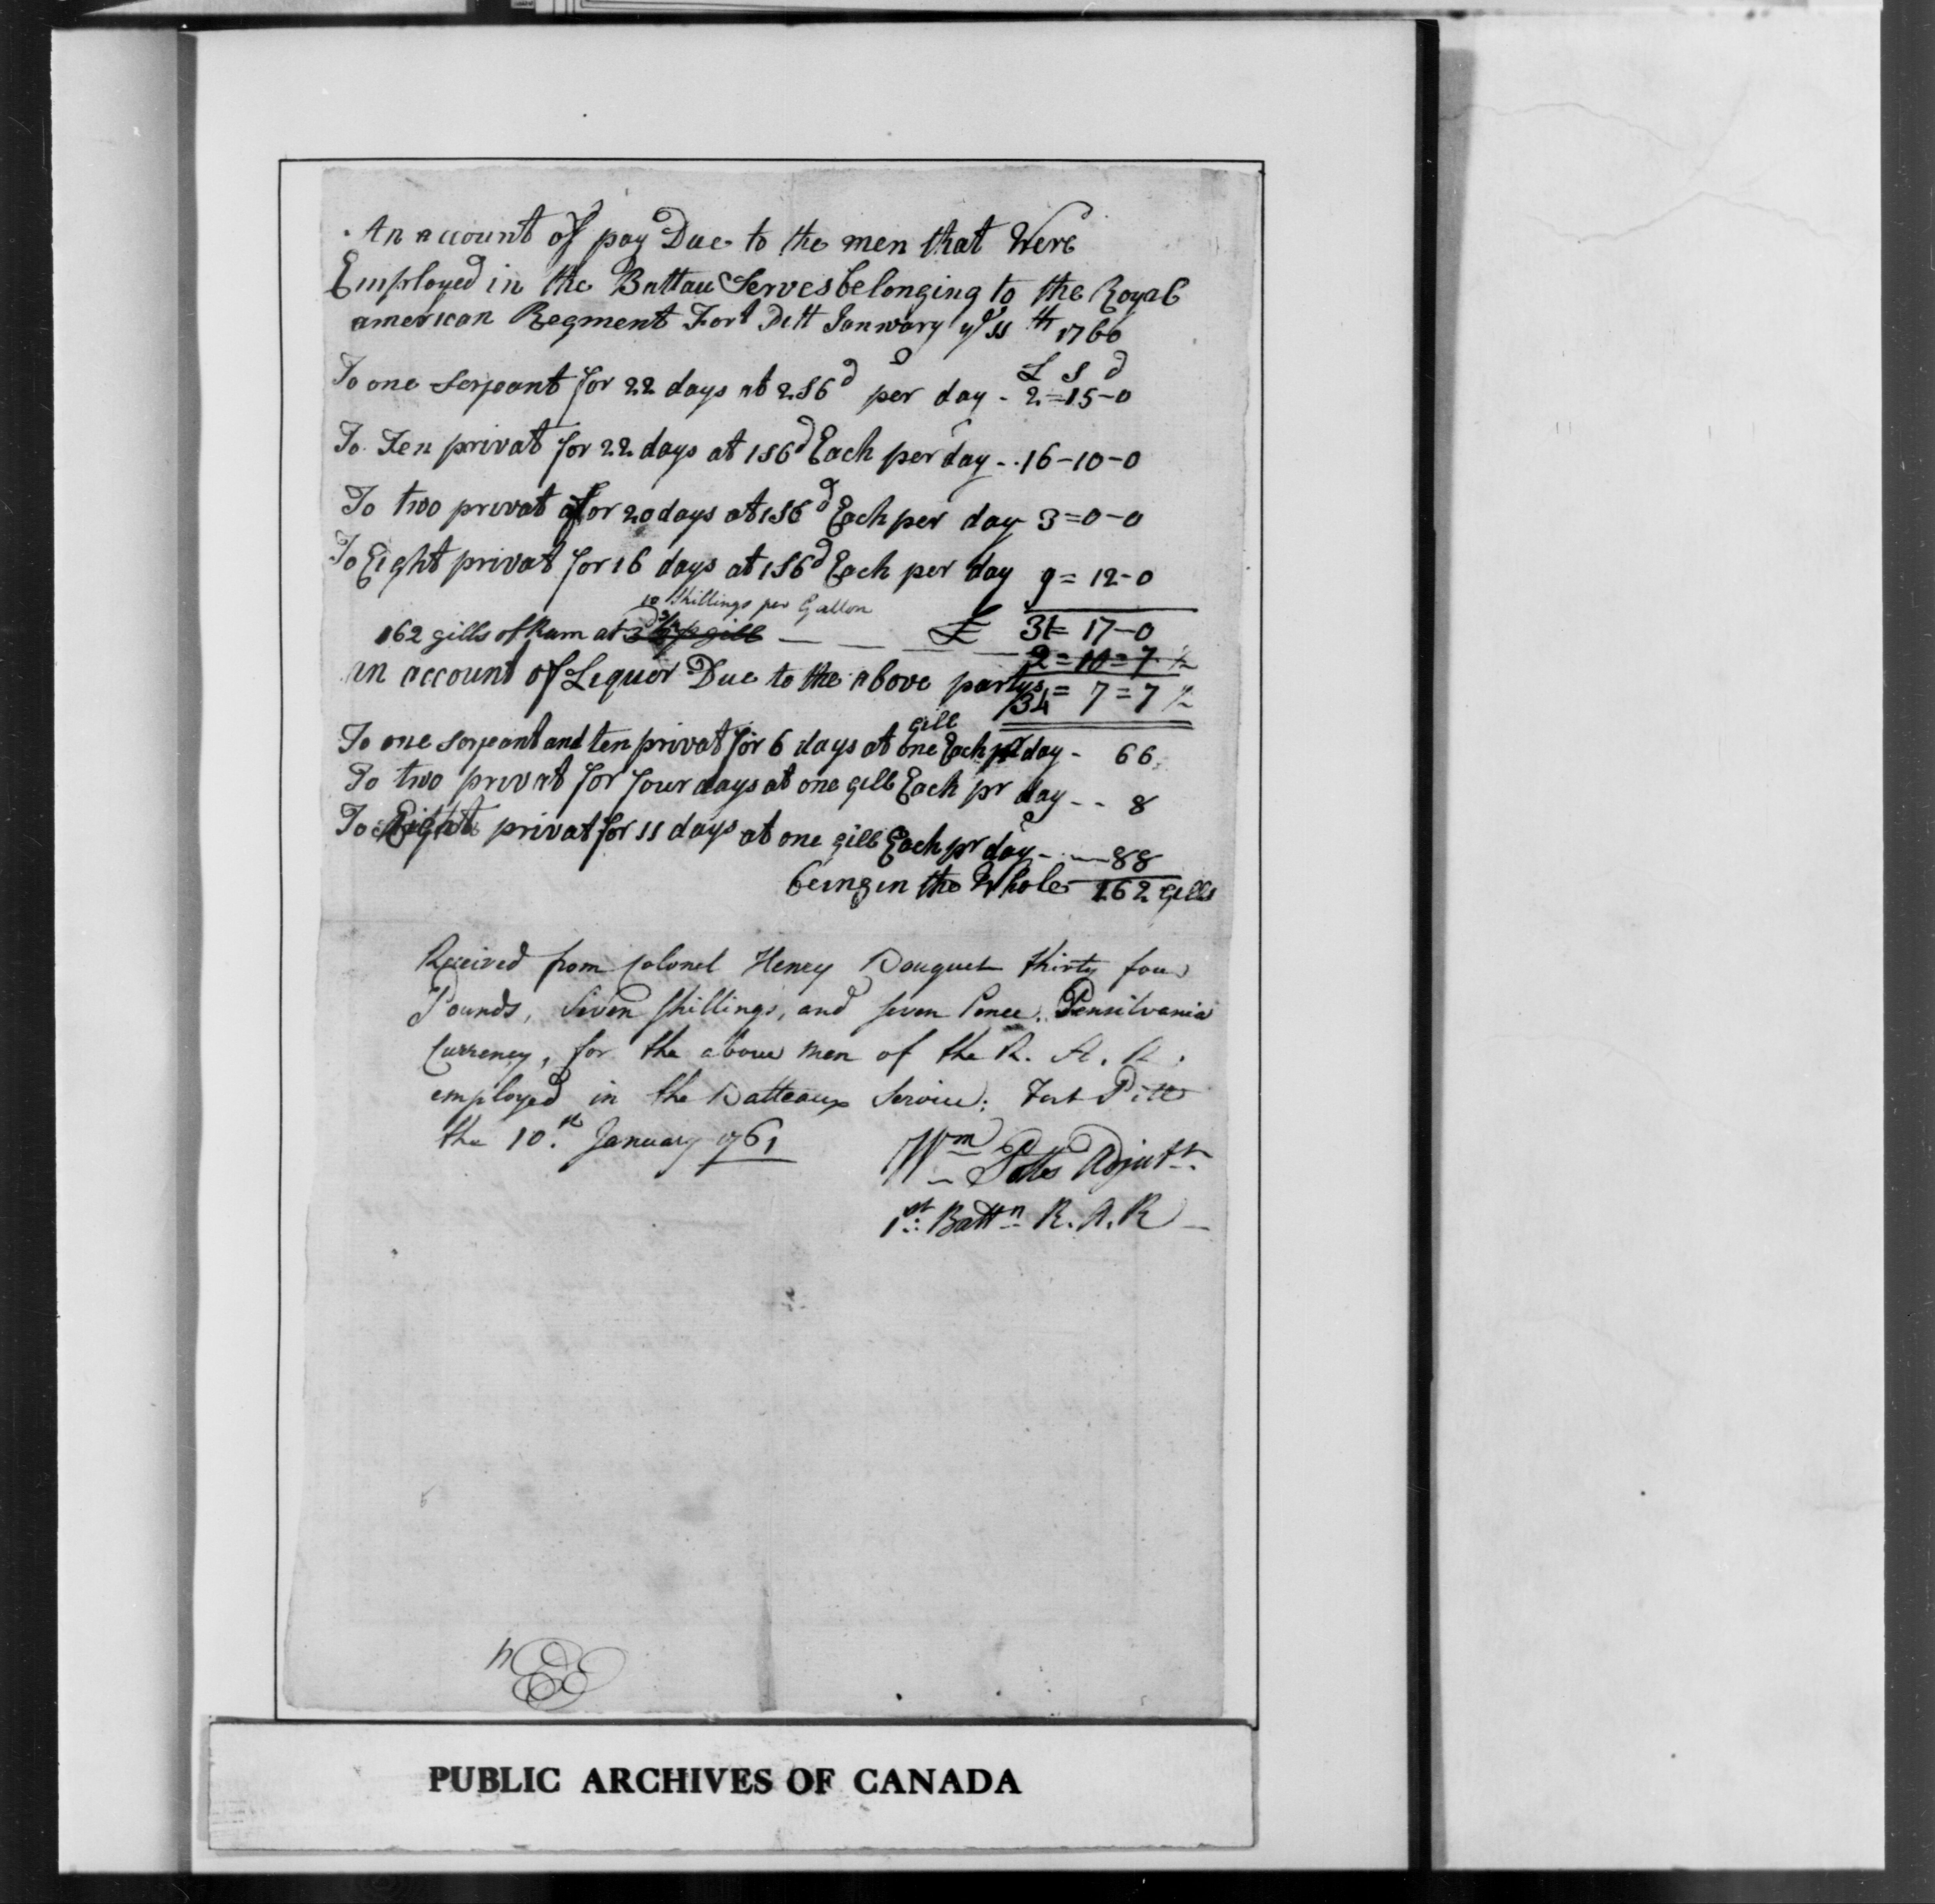 An account of pay Due to the men that Were
Employed in the Battau Serves belonging to the Royal
american Regment Fort Pitt Janwary ye 11th 1760
L S D
To one Serjeant for 22 days at 2S6d per day - 2=15-0
To Ten privat for 22 days at 1S6d Each per day - . 16-10-0
To two privat for 20 days at 1S6d Each per day 3=0-0
To Eight privat for 16 days at 1S6d Each per day 9=12-0
10 Shillings per Gallon
162 gills of Rum at 3d 3/4 p gill — — — £ 31=17-0
2=10=7 ½
an account of Lequor Due to the above partys
34=7=7 ½
gill
To one Serjeant and ten privat for 6 days at one Each pr day - 66
To two privat for four days at one gill Each pr day - - 8
To Eight privat for 11 days at one gill Each pr day - - 88
being in the Whole 162 gills
Received from Colonel Henry Bouquet thirty four
Pounds, Seven Shillings, and seven Pence, Pensilvania
Currency, for the above Men of the R. A. R.
employed in the Batteaux Service; Fort Pitt
the 10th January 1761
Wm Potts Adjutt
1st: Battn R. A. R
PUBLIC ARCHIVES OF CANADA